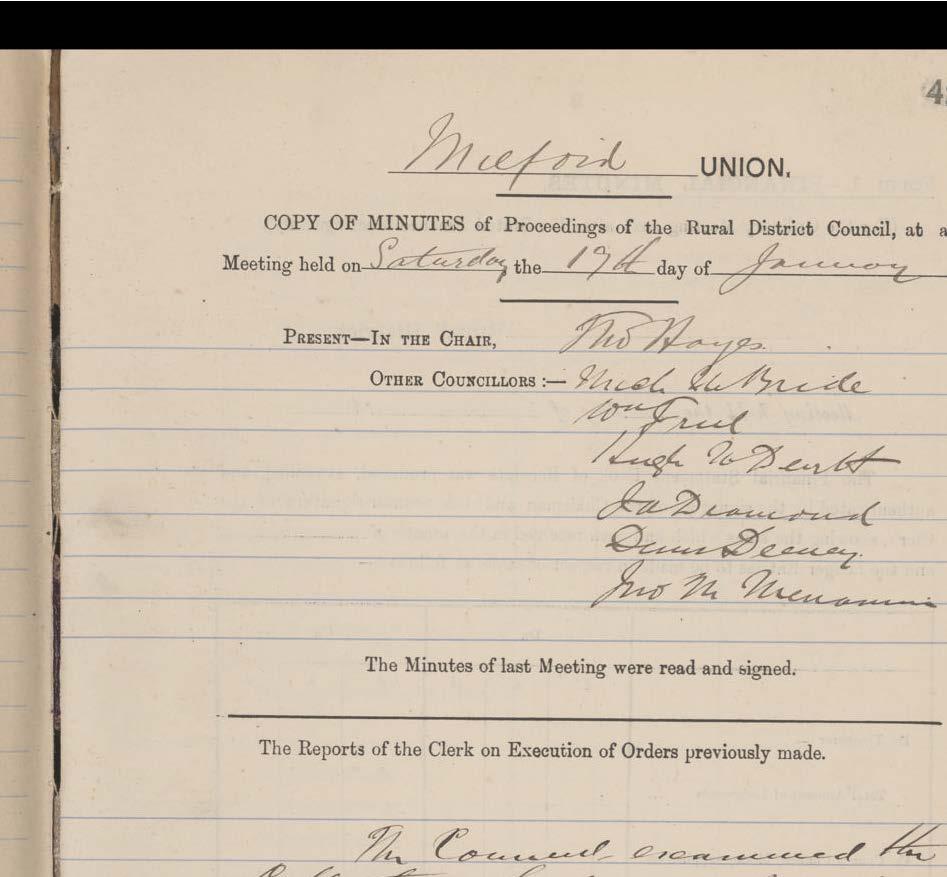 4
Milford UNION.
COPY OF MINUTES of Proceedings of the Rural District Council, at a
Meeting held on Saturday the 19th day of January
PRESENT—IN THE CHAIR, Thos Hayes
OTHER COUNCILLORS :— Mich McBride
Wm Friel
Hugh McDevitt
Ja Diamond
Denis Deeney
Jno M Menamin
The Minutes of last Meeting were read and signed.
The Reports of the Clerk on Execution of Orders previously made.
The Council examined the